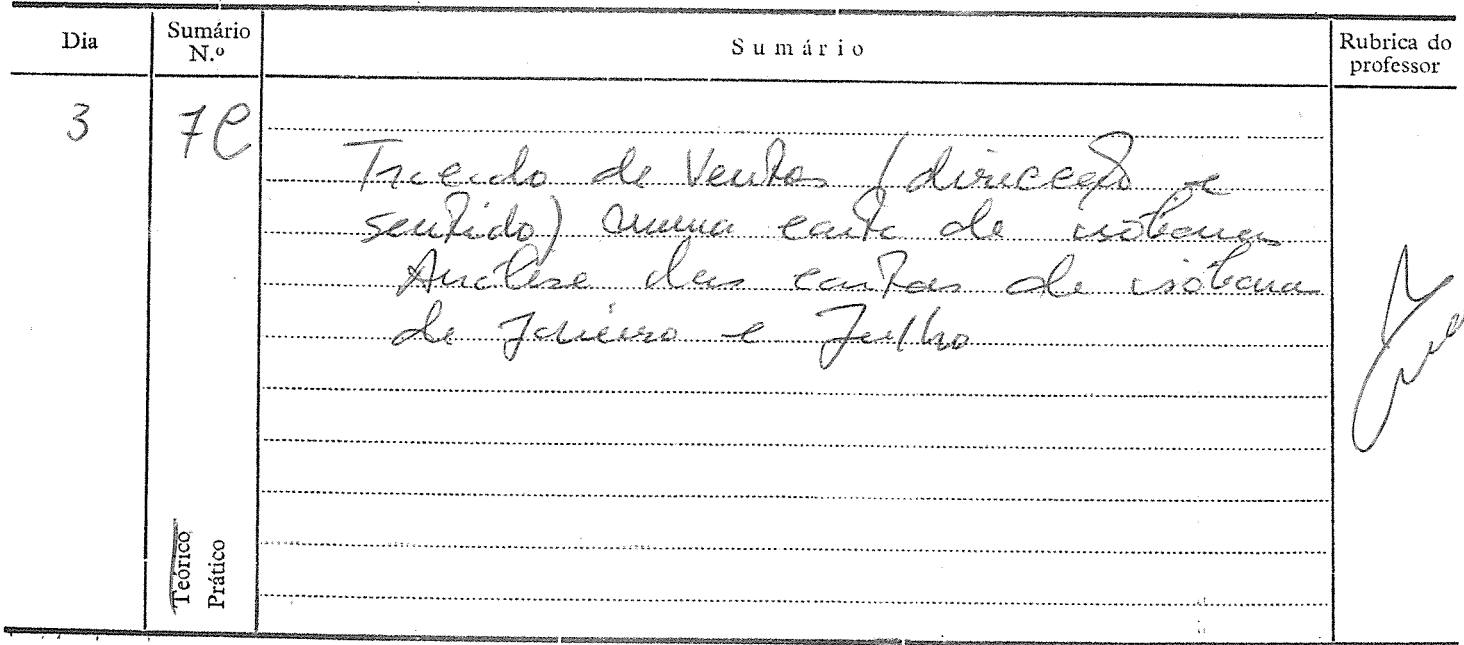 Dia
Sumário
N.º
Sumário
Rubrica do
professor
3
7
Traçado de Ventos (direcção e
sentido) numa carta de isóbaras
Análise das cartas de isóbaras
de Janeiro e Julho
Teórico
Prático